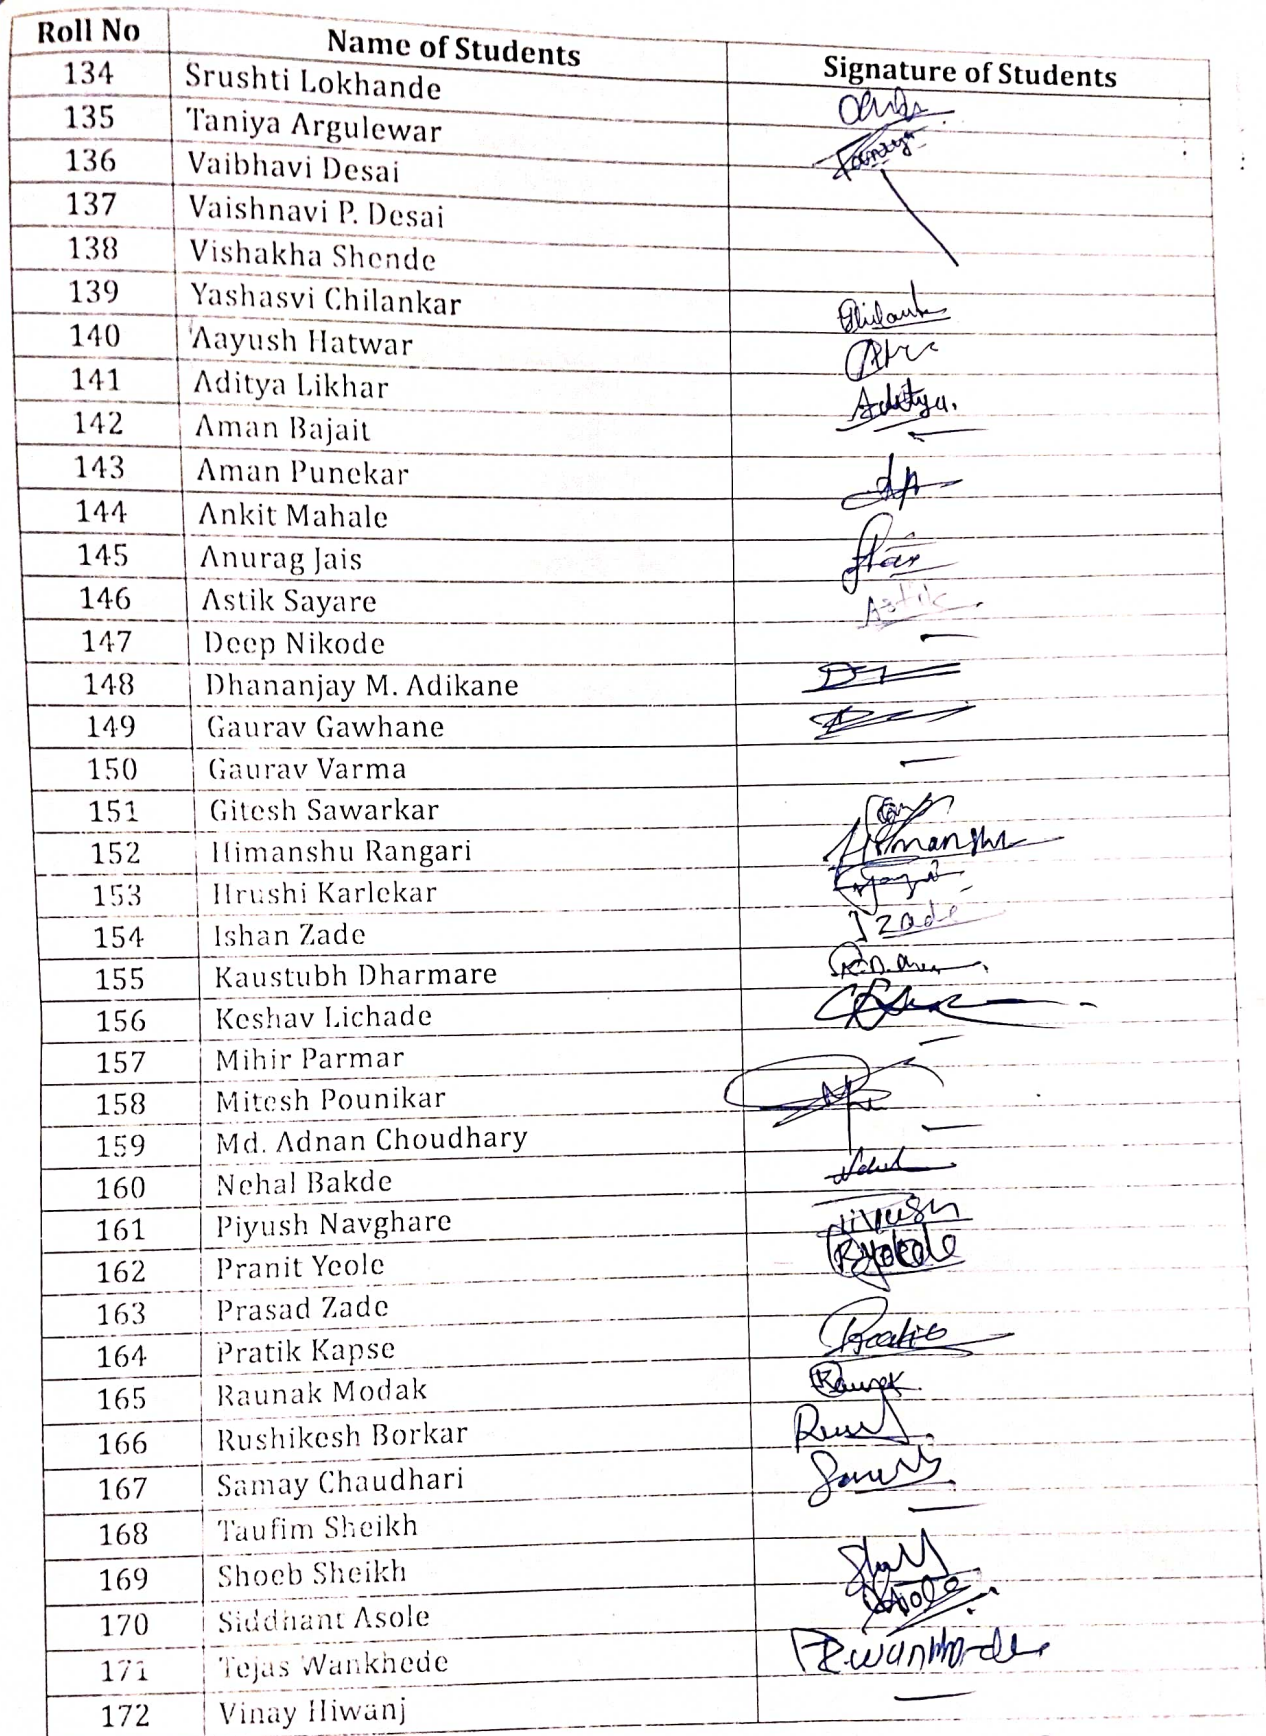 Roll No Name of Students Signature of Students
134 Srushti Lokhande
135 Taniya Argulewar Taniya
136 Vaibhavi Desai
137 Vaishnavi P. Desai
138 Vishakha Shende
139 Yashasvi Chilankar
140 Aayush Hatwar
141 Aditya Likhar Aditya.
142 Aman Bajait
143 Aman Punekar
144 Ankit Mahale
145 Anurag Jais
146 Astik Sayare Astik.
147 Deep Nikode
148 Dhananjay M. Adikane
149 Gaurav Gawhane
150 Gaurav Varma
151 Gitesh Sawarkar
152 Himanshu Rangari Himanshu
153 Hrushi Karlekar
154 Ishan Zade I Zade
155 Kaustubh Dharmare
156 Keshav Lichade
157 Mihir Parmar
158 Mitesh Pounikar
159 Md. Adnan Choudhary
160 Nehal Bakde
161 Piyush Navghare Piyush
162 Pranit Yeole
163 Prasad Zade
164 Pratik Kapse Pratik
165 Raunak Modak Raunak
166 Rushikesh Borkar
167 Samay Chaudhari
168 Taufim Sheikh
169 Shoeb Sheikh
170 Siddhant Asole Asole
171 Tejas Wankhede
172 Vinay Hiwanj